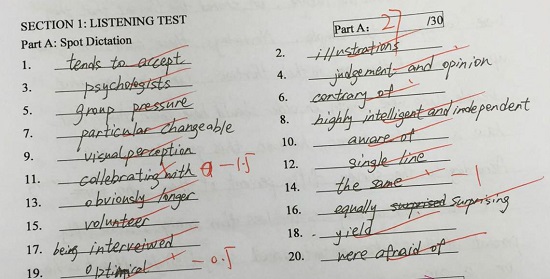 SECTION 1: LISTENING TEST
Part A: 27 /30
Part A: Spot Dictation
1. tends to accept
2. illustrations
3. psychologists
4. judgement and opinion
5. group pressure
6. contrary of
7. particular changeable
8. highly intelligent and independent
9. visual perception
10. aware of
11. collebrating with -1.5
12. single line
13. obviously longer
14. the same -1
15. volunteer
16. equally surprised surprising
17. being interveiwed
18. yield
19. optimical -0.5
20. were afraid of